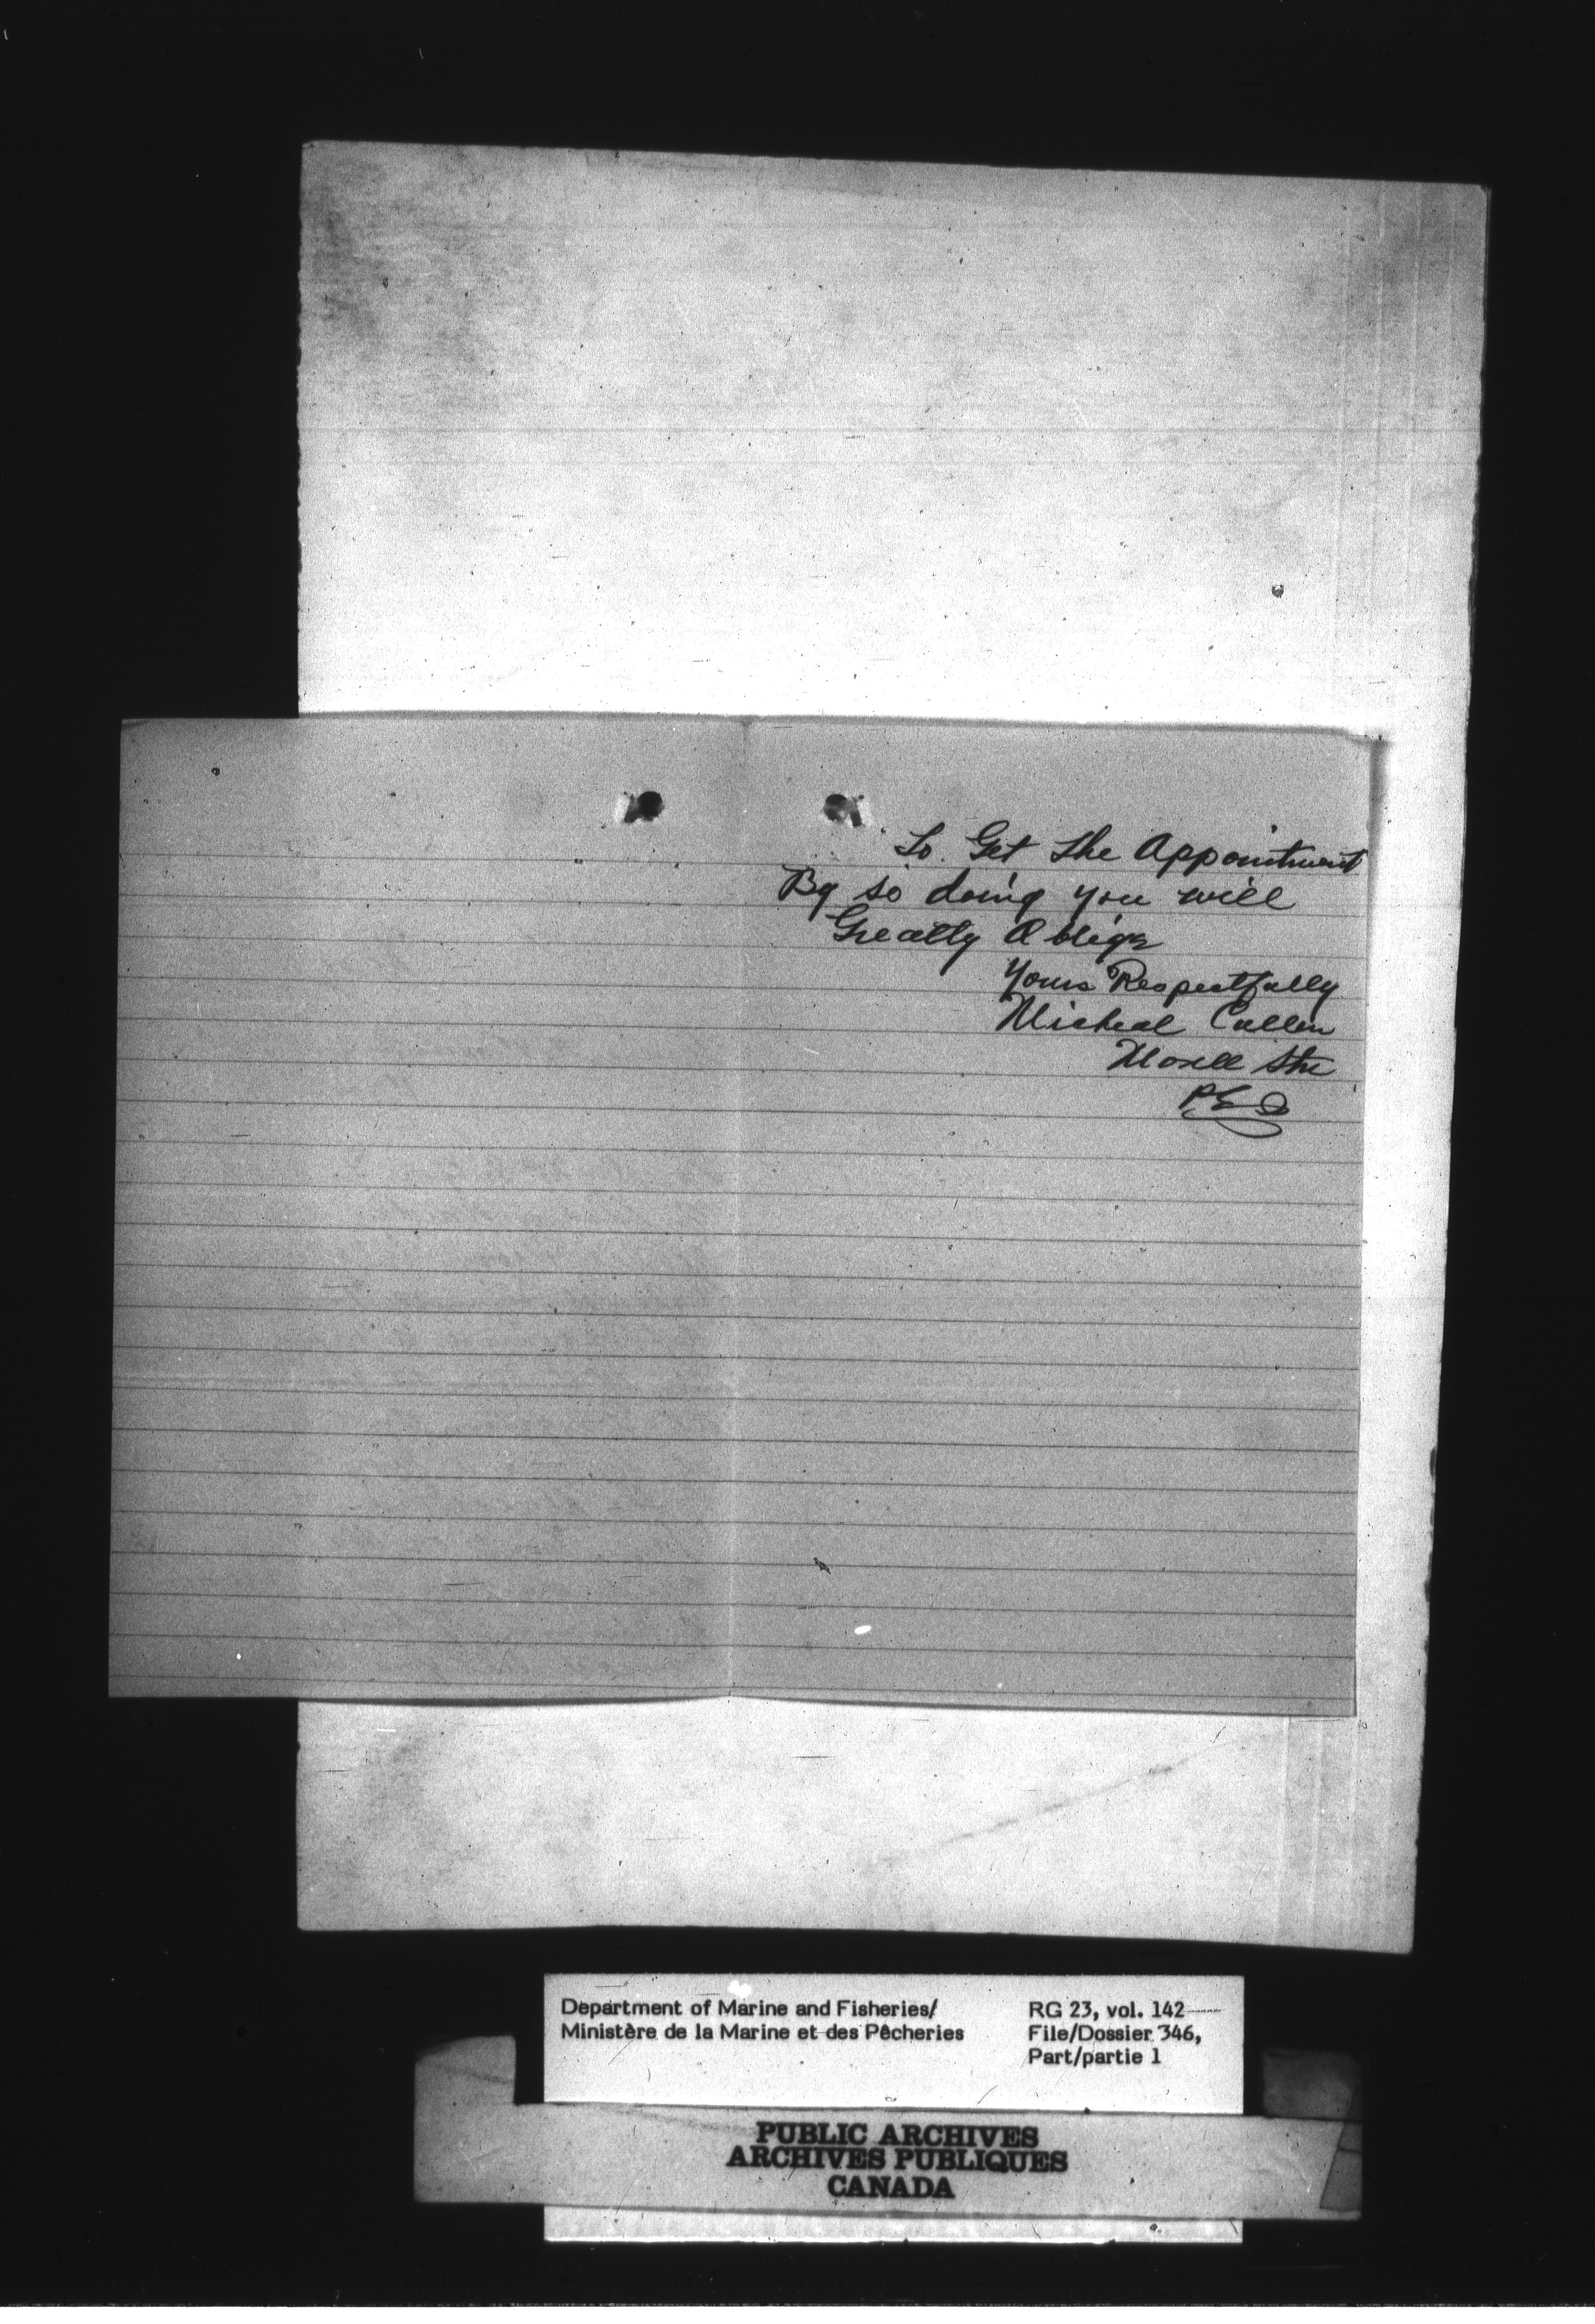 To Get the Appointment
By so doing you will
Greatly Oblige
Yours Respectfully
Micheal Cullen
Morell Stn
P.E.I
Department of Marine and Fisheries/
Ministère de la Marine et des Pêcheries
RG 23, vol. 142
File/Dossier 346,
Part/partie 1
PUBLIC ARCHIVES
ARCHIVES PUBLIQUES
CANADA